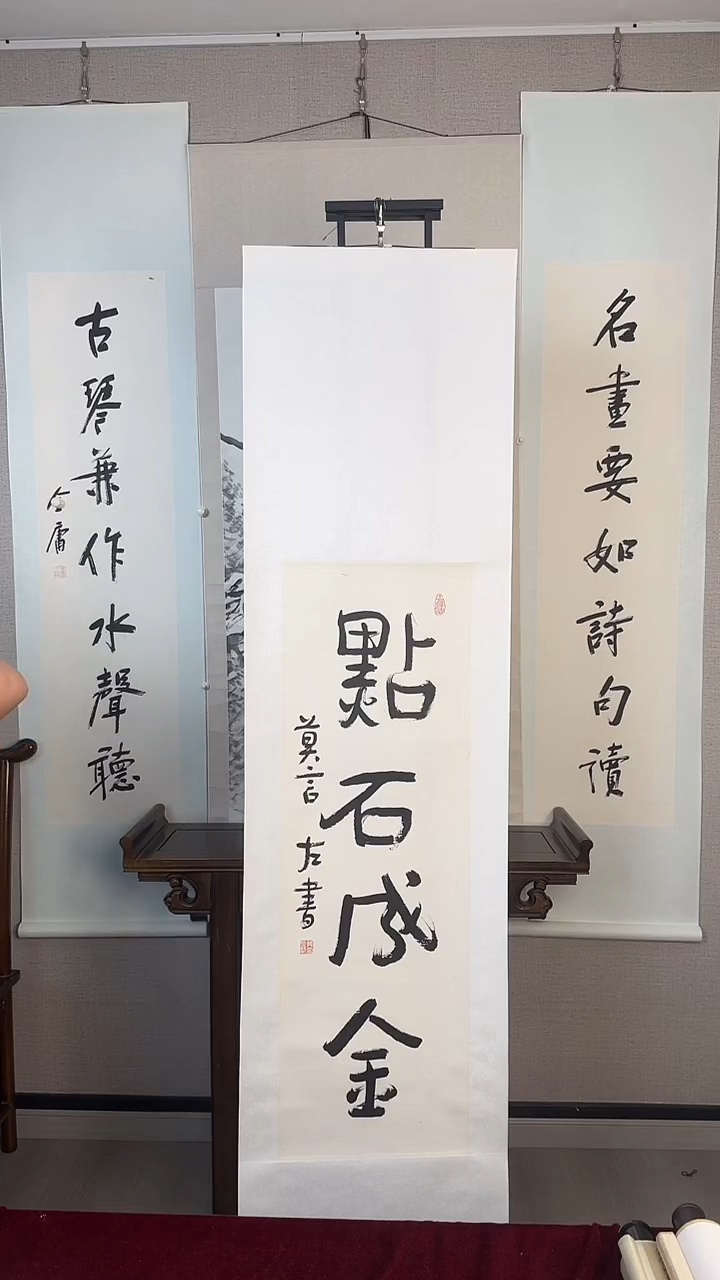 名畫要如詩句讀
點石成金
莫言左書
古琴兼作水聲聽
金庸